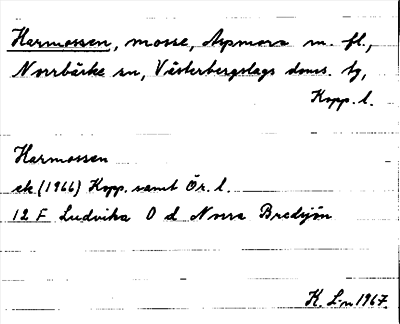 Harmossen, mosse, Aspmora m. fl.,
Norrbärke sn, Västerbergslags doms. tg,
Kopp. l.
Harmossen
ek (1966) Kopp. samt Ör. l.
12 F Ludvika O d Norra Bredsjön
K. L-n 1967.